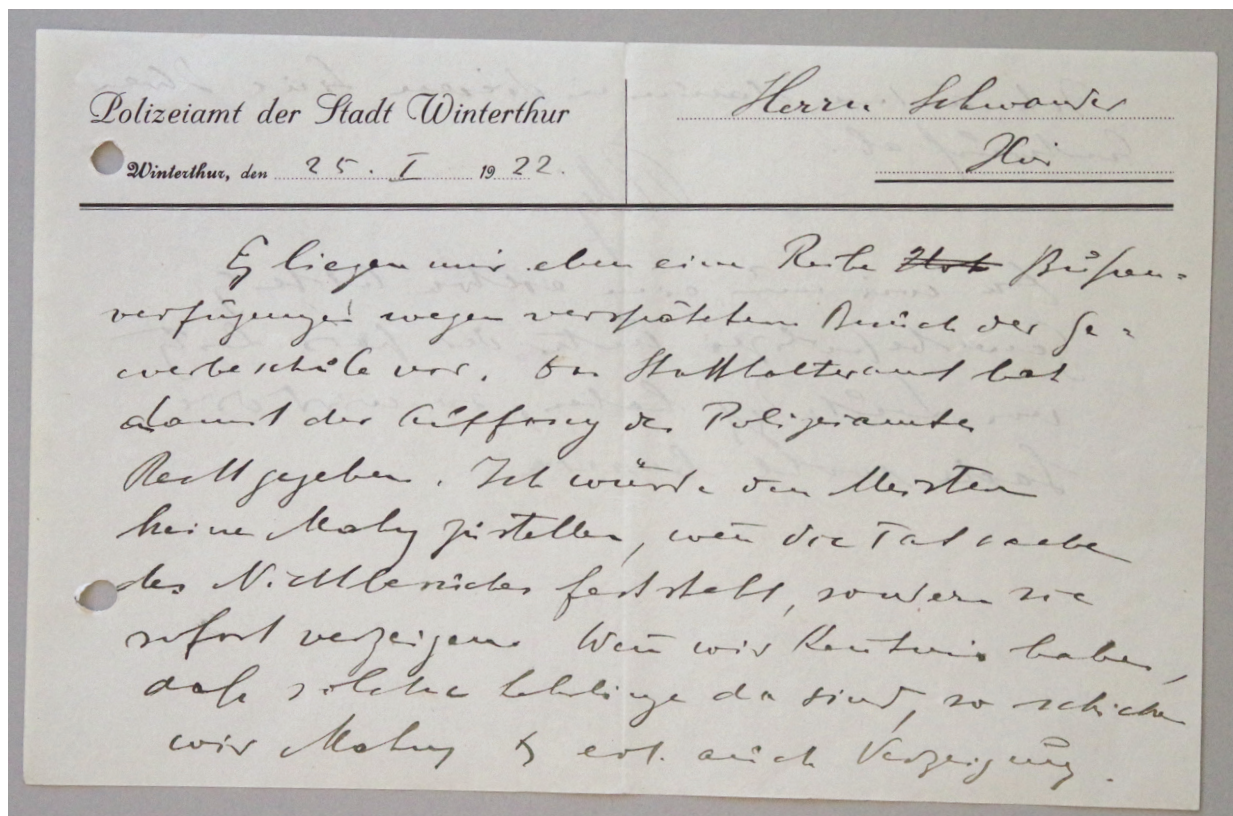 Polizeiamt der Stadt Winterthur
Winterthur, den 25. I 1922.
Herrn Schwander
Hier
Es liegen mir eben eine Reihe Bußen-
verfügungen wegen verspätetem Besuch der Ge-
werbeschule vor. Das Statthalteramt hat
damit der Auffassg des Polizeiamtes
Recht gegeben. Ich würde den Meistern
keine Mahng zustellen, wen̄ die Tatsache
des Nichtbesuches feststeht, sondern sie
sofort verzeigen. Wen̄ wir Kentnis haben,
daß solche Lehrlinge da sind, so schicken
wir Mahng & evt. auch Verzeigung.